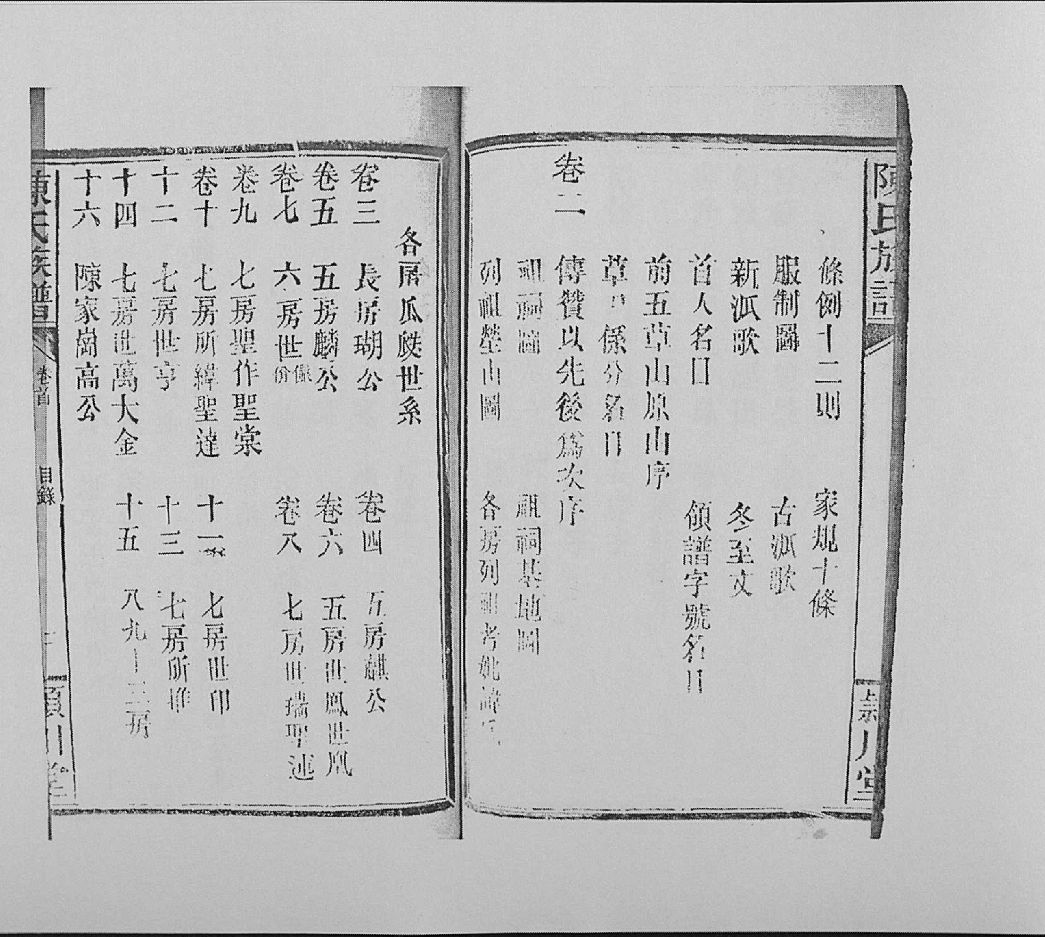 陳氏族譜
潁川堂
條例十二則 家規十條
服制圖 古派歌
新派歌 冬至文
首人名目 領譜字號名目
前五草山原山序
草 係分名目
卷二 傳贊以先後為次序
祖祠圖 祖祠基地圖
列祖塋山圖 各房列祖考妣諱
各房瓜瓞世系
卷三 長房瑚公 卷四 五房麒公
卷五 五房麟公 卷六 五房世鳳世凰
卷七 六房世儀份 卷八 七房世瑞聖述
卷九 七房聖作聖棠
卷十 七房所緯聖達 十一 七房世印
十二 七房世亨 十三 七房所
十四 七房世萬大金 十五 八九十三房
十六 陳家崗高公
陳氏族譜 卷首 目錄
潁川堂